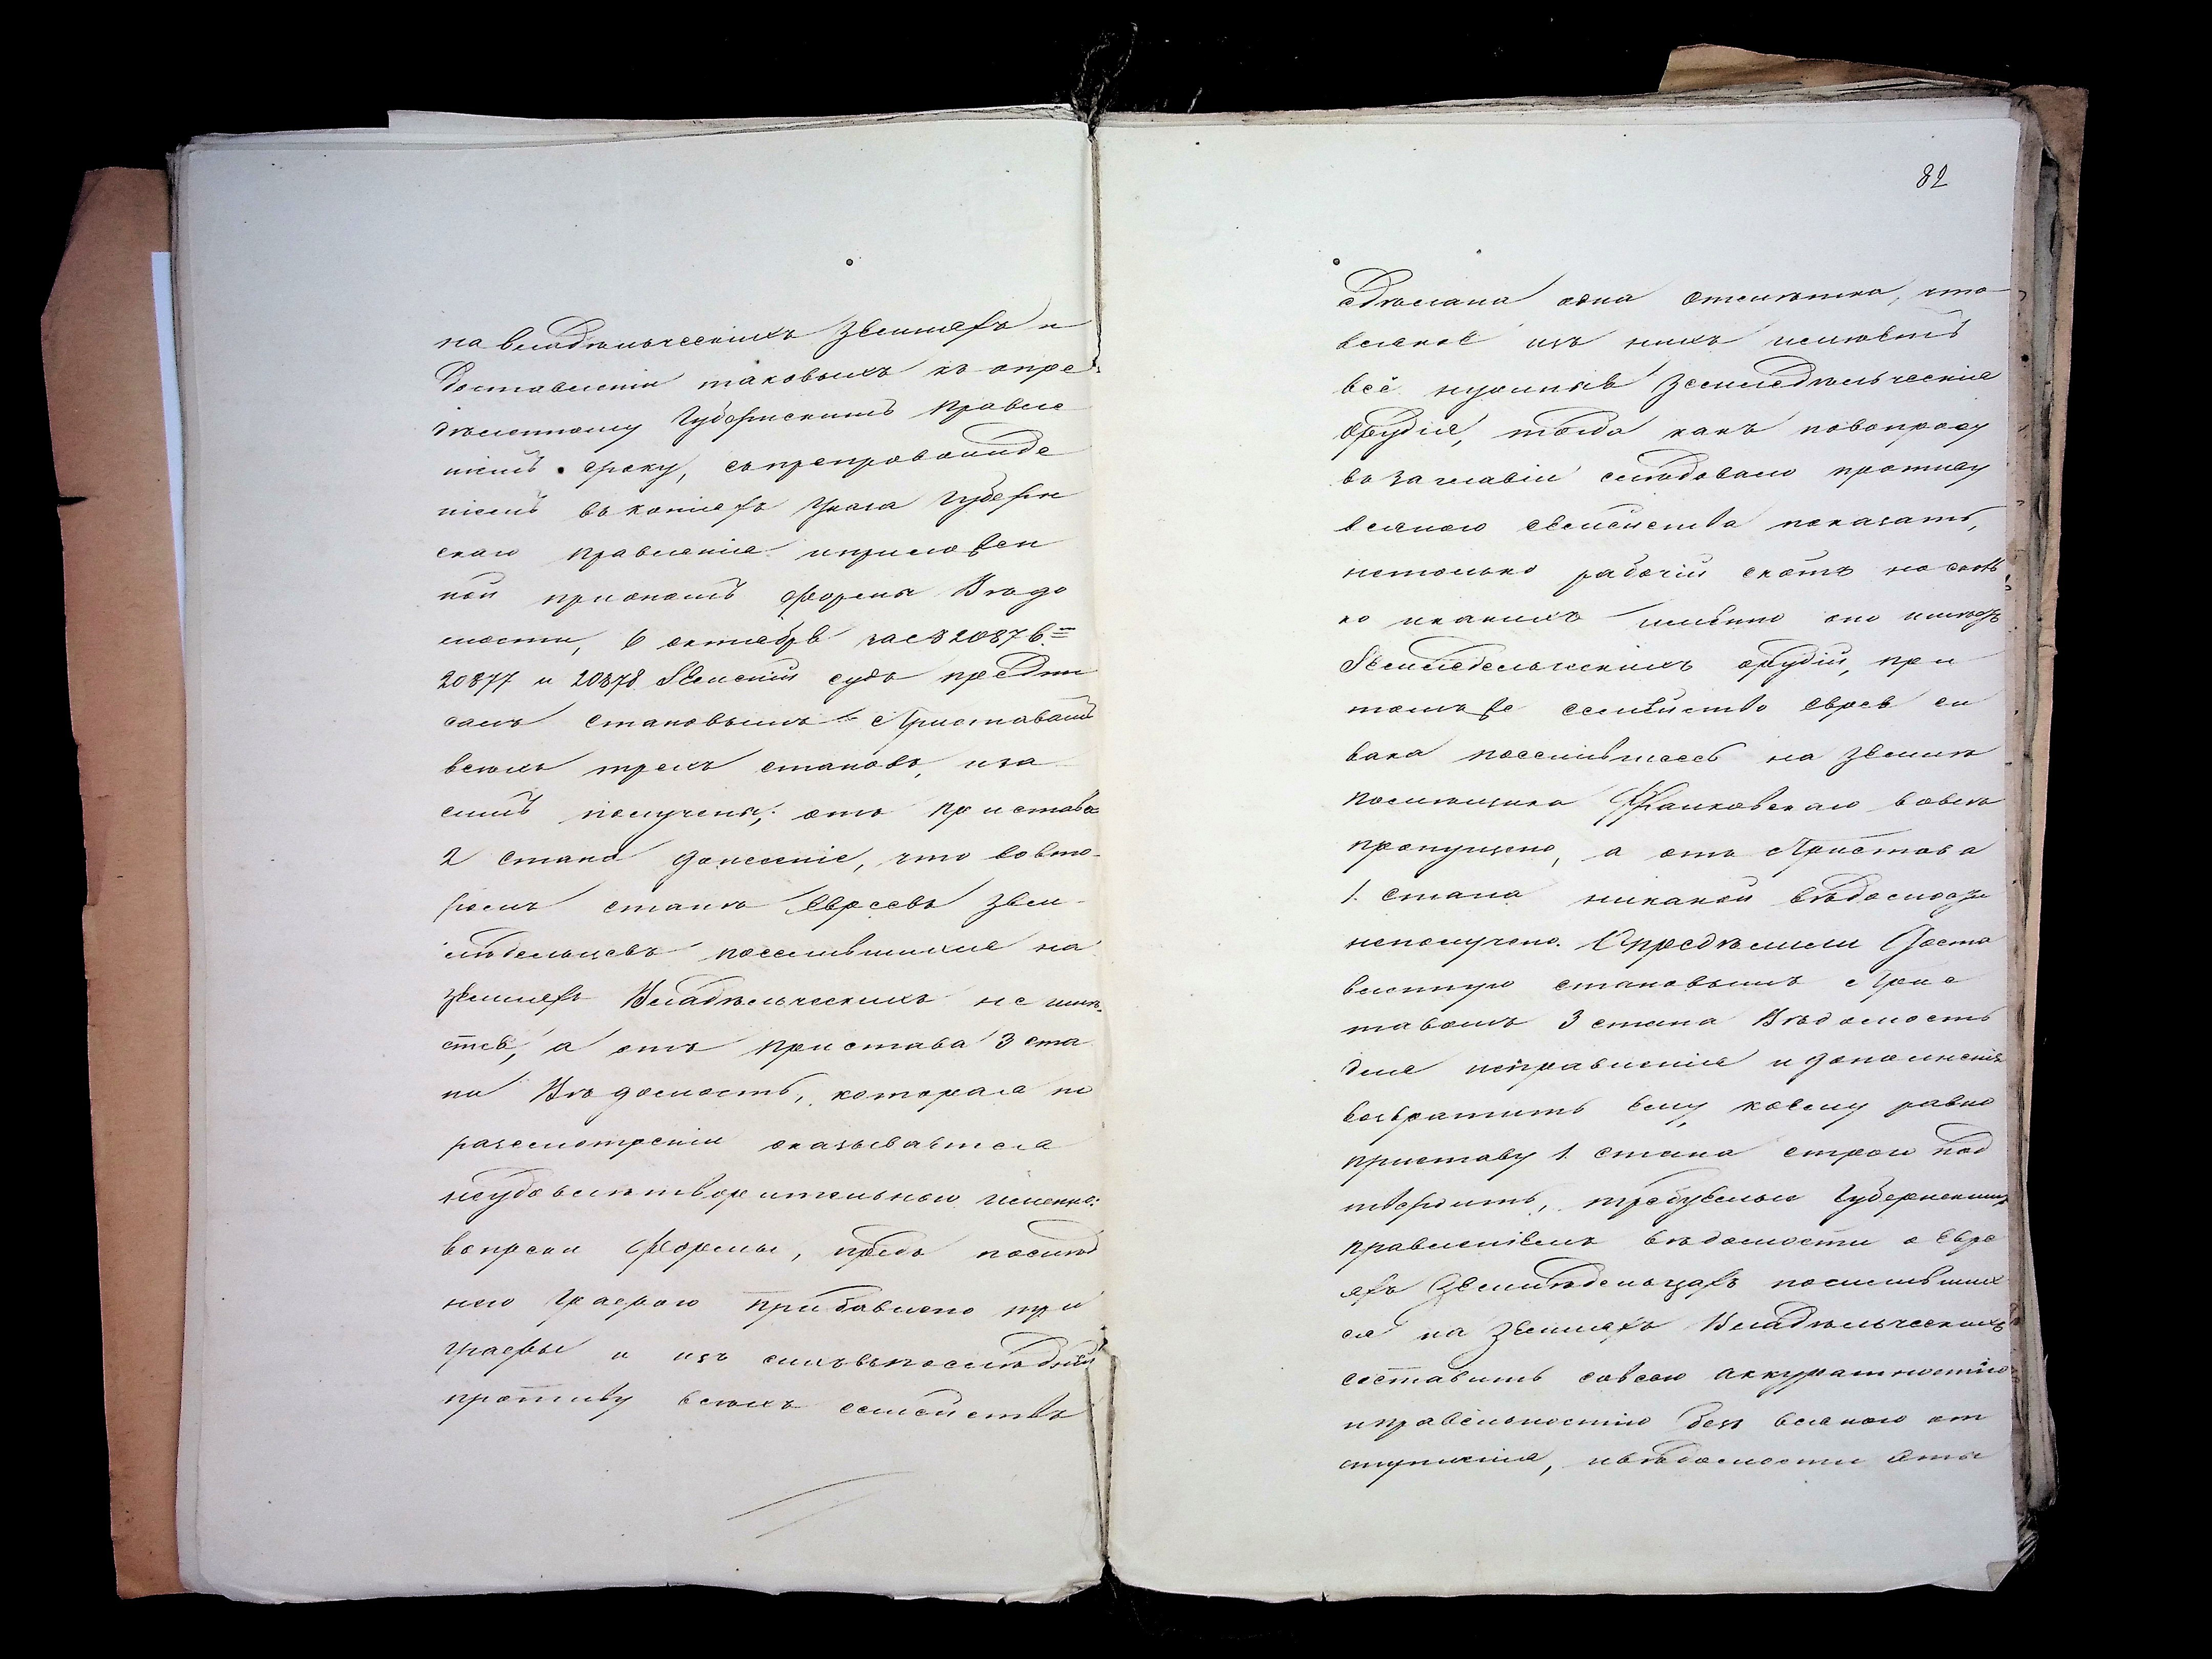 на владѣльческихъ земляхъ и
доставленіи таковыхъ къ опре-
дѣленному Губернскимъ Правле
ніемъ сроку, съ препровожде
ніемъ въ копіяхъ Указа Губерн
скаго Правленія и приложен
ной при ономъ формы Вѣдо
мости, 6 октября за № 20876.
20877 и 20878 Земскій судъ предпи
салъ Становымъ Приставамъ
всѣхъ трехъ становъ, иза
симъ получены: отъ Пристава
2 стана донесеніе, что во вто-
ромъ станѣ Евреевъ зем-
лѣдельцевъ поселившихся на
земляхъ Владѣльческихъ не имѣ-
ется, а отъ Пристава 3 ста
на Вѣдомость, которая по
разсмотреніи оказывается
неудовлетворительною именно:
вопреки формы, предъ послѣд
нею графою прибавлено три
графы и изъ сихъ въ послѣдней
противу всѣхъ семействъ
82
Сдѣлана одна отмѣтка, что
всякое изъ нихъ имѣетъ
всѣ нужныя земледѣльческія
орудія, тогда какъ по вопросу
въ заглавіи слѣдовало противу
всякого семейства показать,
нетолько рабочій скотъ но сколь
ко и какихъ именно оно имѣетъ
Земледельческихъ орудій, при
томъ же семейство Еврея
поселившееся на землѣ
помѣщика вовсе
пропущено, а отъ Пристава
1. стана никакой вѣдомости
неполучено. Определили Доста
вленную становымъ Прис
тавомъ 3 стана Вѣдомость
для исправленія и дополненія
возвратить ему, коему равно
приставу 1. стана строго под
твердить, требуемые Губернскимъ
правленіемъ вѣдомости о Евре
яхъ Землѣдельцахъ поселивших
ся на земляхъ Владѣльческихъ
составить со всею аккуратностію
и правильностію безъ всякого от
ступленія, и вѣдомости эты